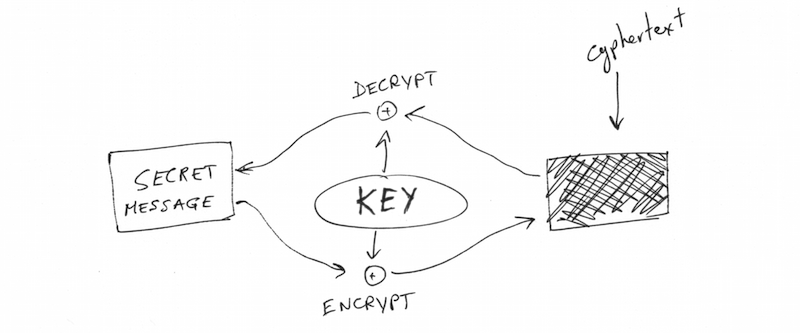 cyphertext
DECRYPT
SECRET
MESSAGE
KEY
ENCRYPT